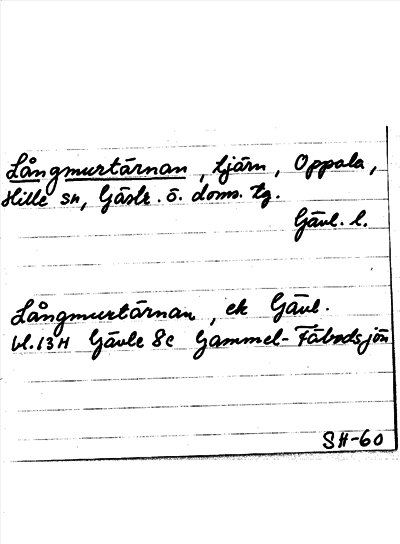 Långmurtärnan, tjärn, Oppala,
Hille sn, Gästr. ö. doms. tg.
Gävl. l.
Långmurtärnan, ek Gävl.
bl. 13H Gävle 8c Gammel-Fäbodsjön
SH-60